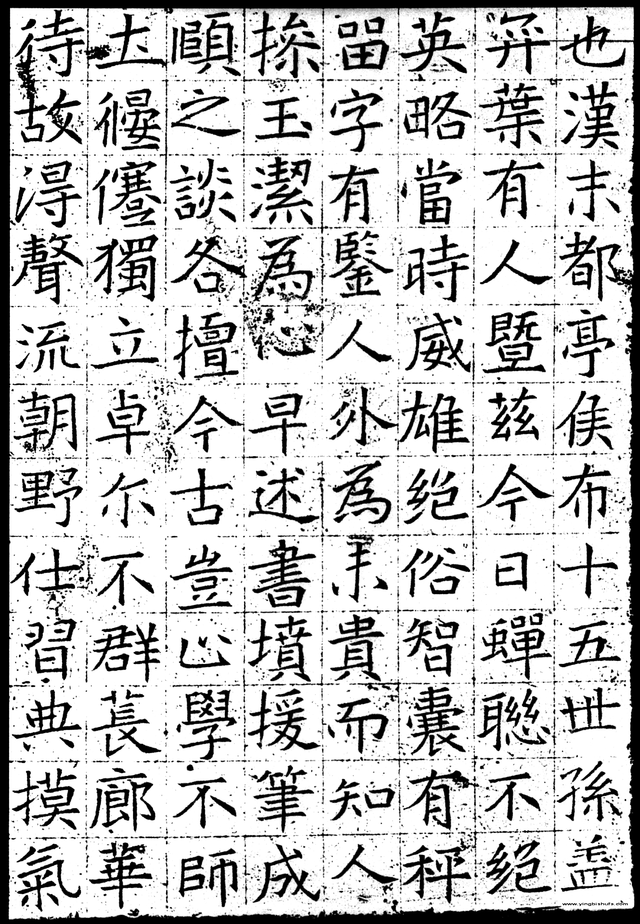 也漢末都亭侯布十五世孫盖
弈葉有人暨茲今日蟬聯不絕
英略當時威雄絕俗智囊有稱
留字有鑒人外為未貴而知人
操玉潔為心早述書墳援筆成
頤之談各擅今古豈止學不師
士偃蹇獨立卓尒不群萇廊華
待故淂聲流朝野仕習典摸氣
www.yingbishufa.com